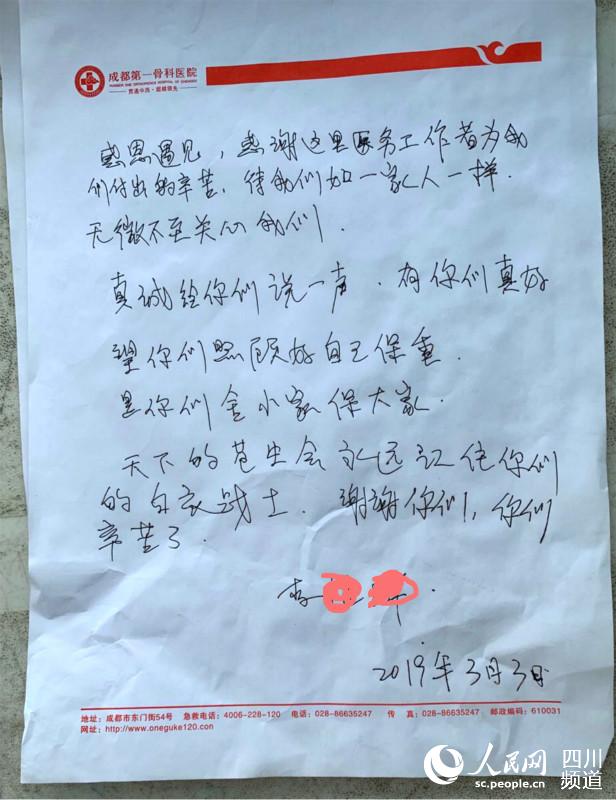 成都第一骨科医院
NUMBER ONE ORTHOPAEDICS HOSPITAL OF CHENGDU
贯通中西·超越领先
感恩遇见，感谢这里医务工作者为我
们付出的辛苦，待我们如一家人一样．
无微不至关心我们．
真诚给你们说一声．有你们真好
望你们照顾好自己保重．
是你们舍小家保大家．
天下的苍生会永远记住你们
的白衣战士．谢谢你们，你们
辛苦了．
李
2019年3月3日
地址：成都市东门街54号 急救电话：4006-228-120 电话：028-86635247 传 真：028-86635247 邮政编码：610031
网址：http://www.oneguke120.con
人民网 四川
频道
sc.people.cn